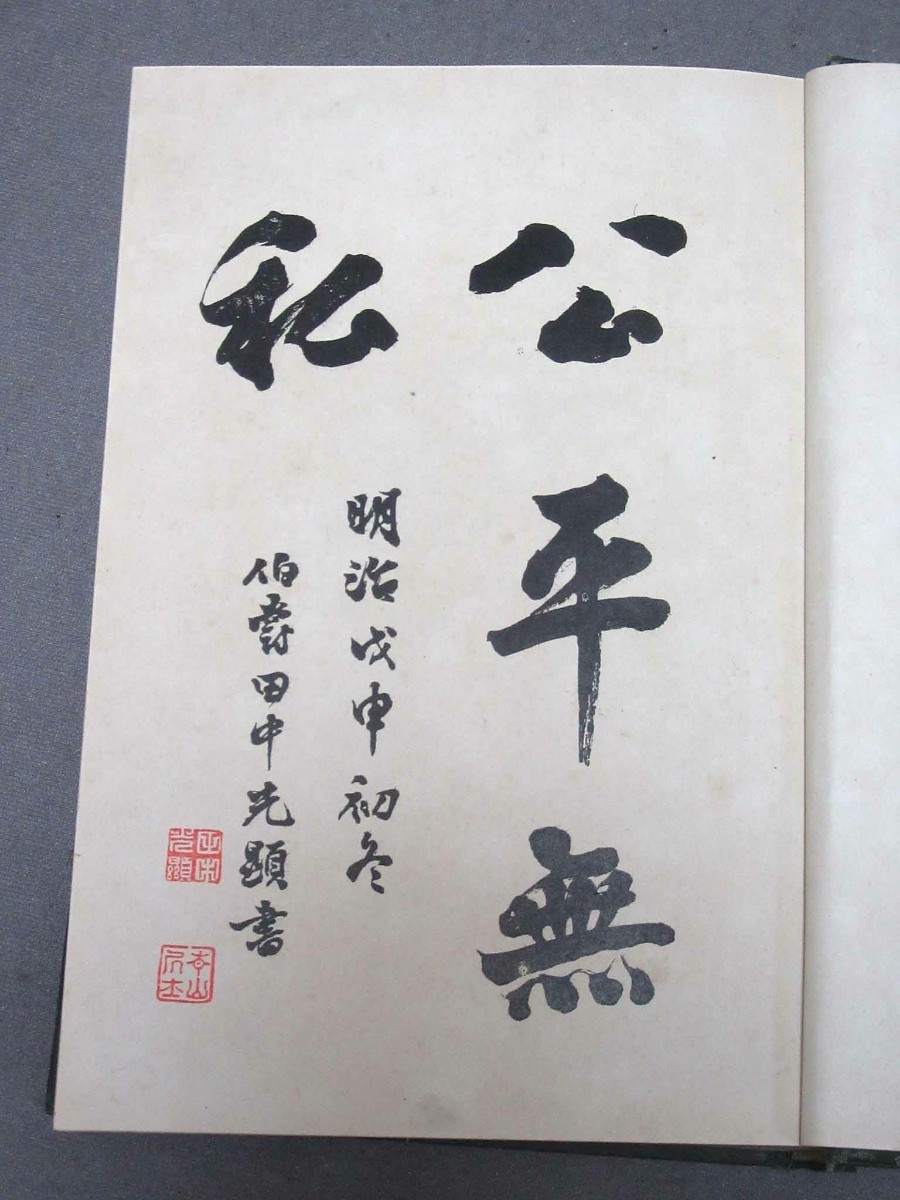 公平無
私
明治戊申初冬
伯爵田中光顕書
田中
光顯